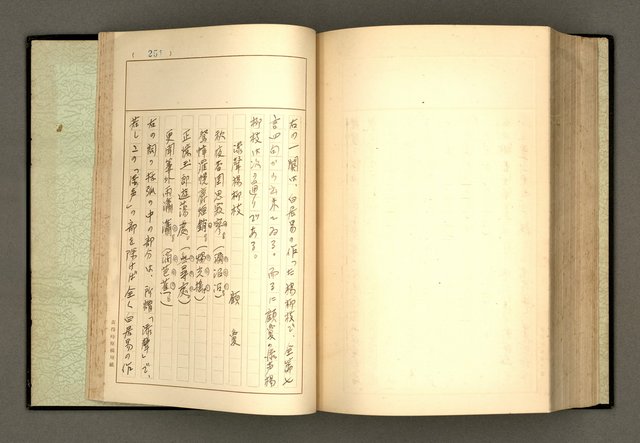 ( 251 )
右の一闋は、白居易の作つた楊柳枝で全篇七
言四句から出来てゐる。而るに顧夐の添声楊
柳枝は次の通りである。
添聲楊柳枝　顧夐
秋夜香閨思寂寥。(漏迢迢。)
鴛幃羅幌麝煙銷。(燭光搖。)
正憶玉郎遊蕩處。(無尋處)
更聞簾外雨瀟瀟。(滴芭蕉。)
右の詞の括弧の中の部分は、所謂「添聲」で、
若し上の「添声」の部を除けば全く白居易の作
黃得時原稿用紙